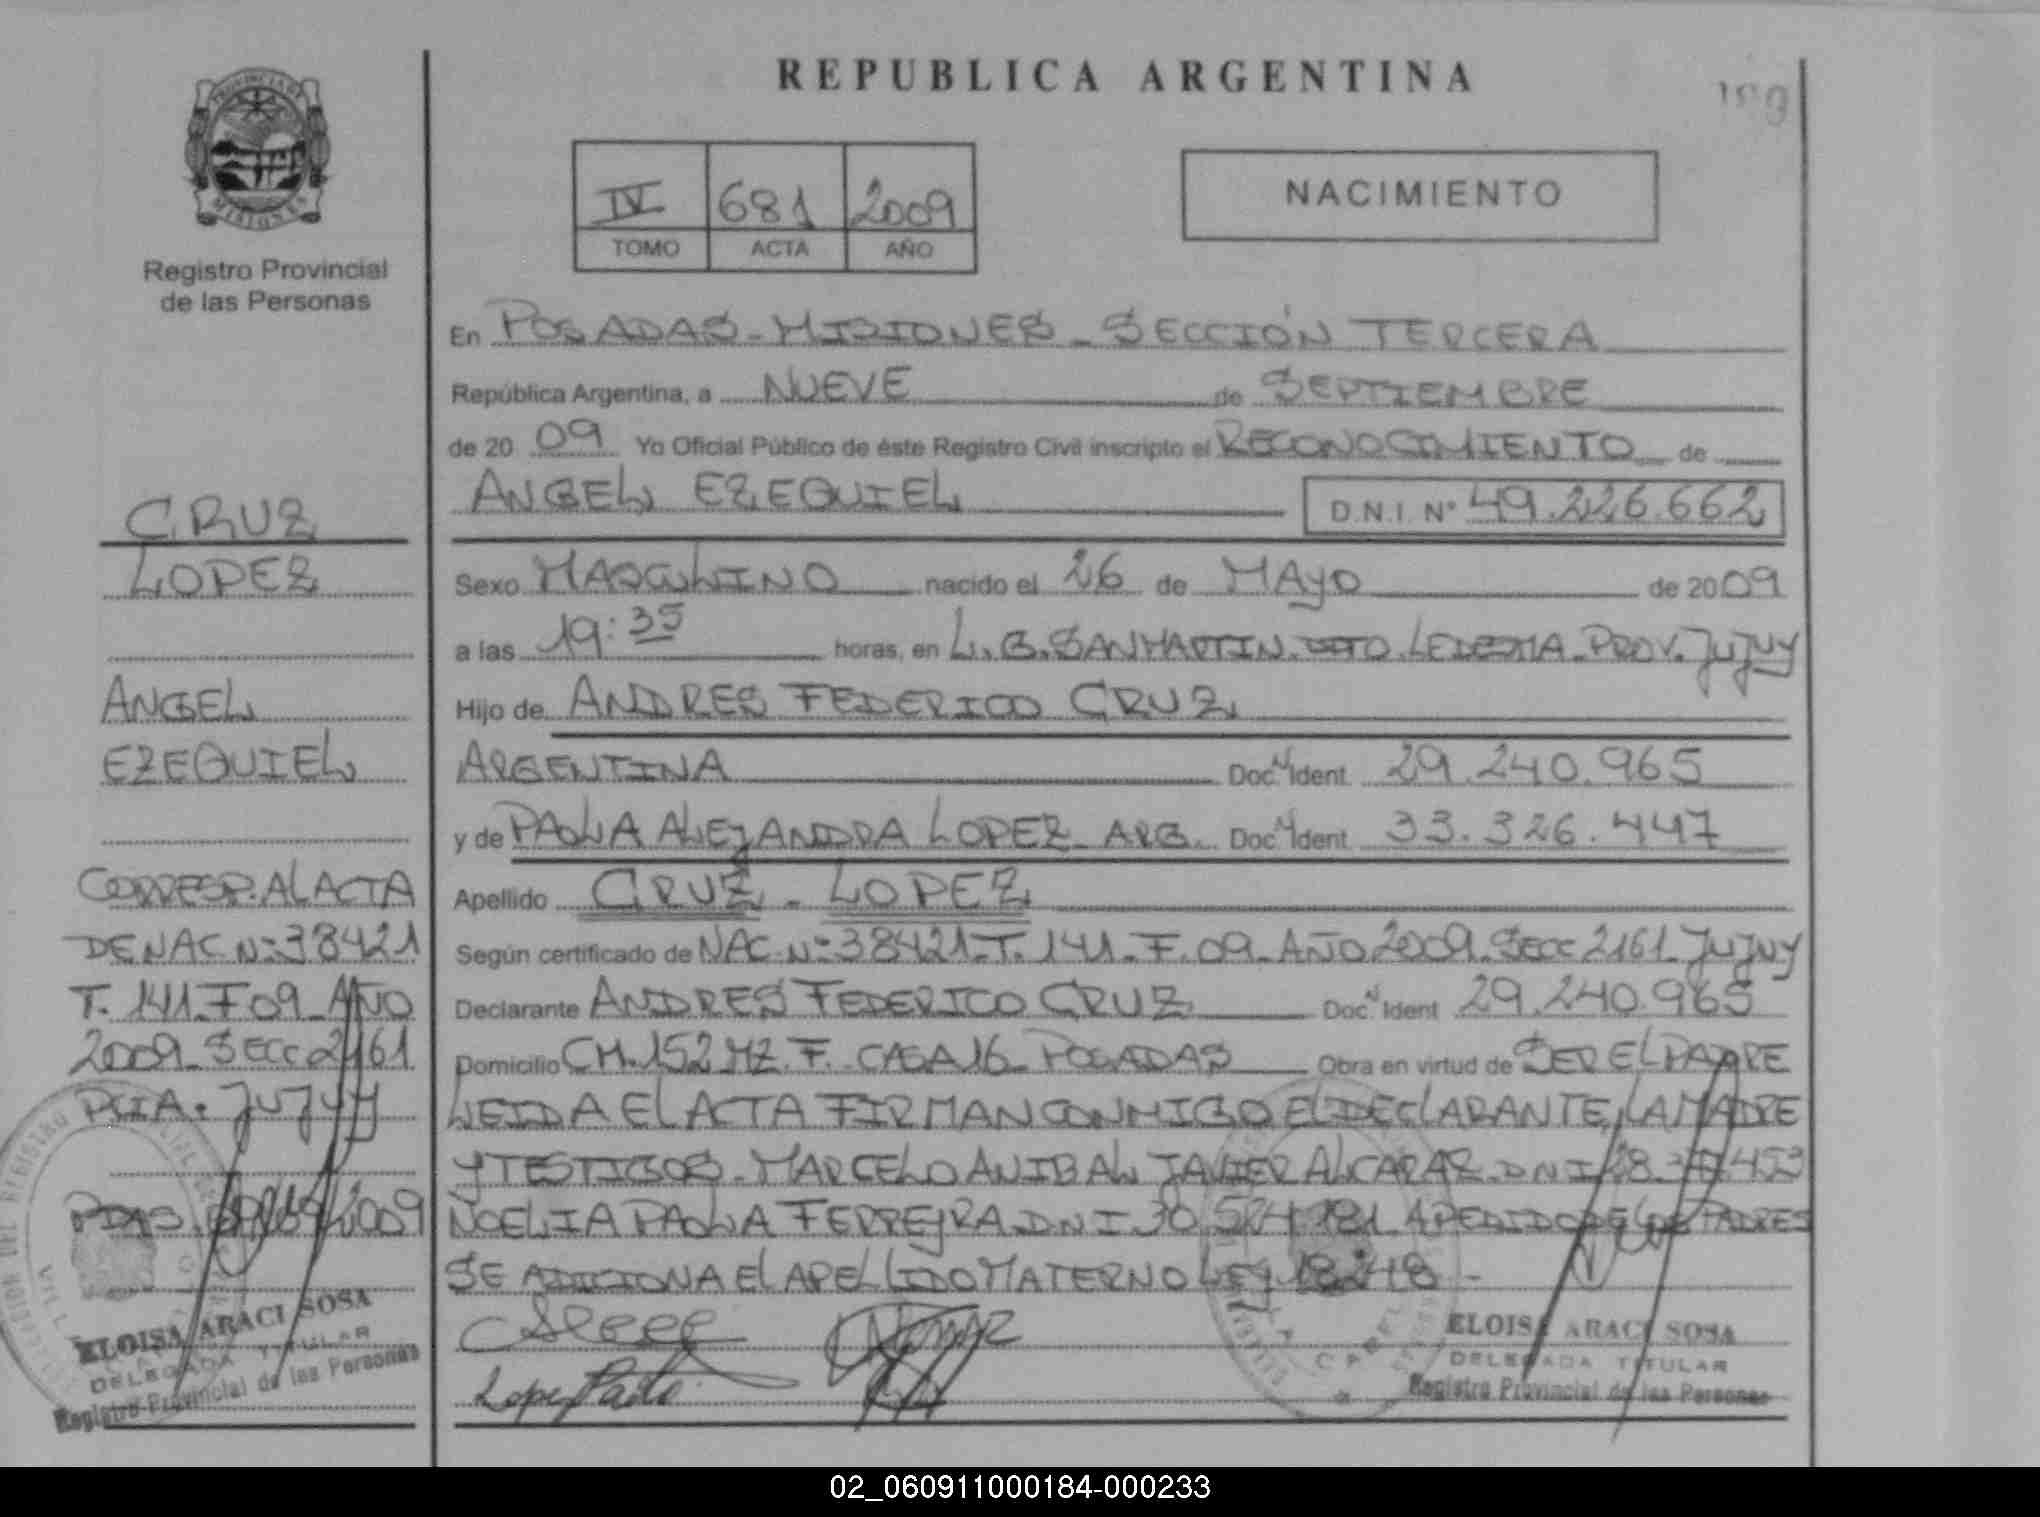 REPUBLICA ARGENTINA
PROVINCIA DE
MISIONES
Registro Provincial
de las Personas
IV 681 2009
TOMO ACTA AÑO
NACIMIENTO
En POSADAS - MISIONES - SECCIÓN TERCERA
República Argentina, a NUEVE de SEPTIEMBRE
de 20 09 Yo Oficial Público de éste Registro Civil inscripto el RECONOCIMIENTO de
ANGEL EZEQUIEL D.N.I. Nº 49.226.662
Sexo MASCULINO nacido el 26 de MAYO de 2009
a las 19:35 horas, en L. G. SAN MARTIN. DPTO. LEDESMA - PROV. JUJUY
Hijo de ANDRES FEDERICO CRUZ
ARGENTINA Doc. Ident. 29.240.965
y de PAOLA ALEJANDRA LOPEZ - ARG. Doc. Ident. 33.326.447
Apellido CRUZ - LOPEZ
Según certificado de NAC. Nº: 38421 - T. 141 - F. 09 - AÑO 2009 - SECC 2161 - JUJUY
Declarante ANDRES FEDERICO CRUZ Doc. Ident. 29.240.965
Domicilio CH. 152 MZ. F. - CASA 16 - POSADAS Obra en virtud de SER EL PADRE
LEIDA EL ACTA FIRMAN CONMIGO EL DECLARANTE, LA MADRE
Y TESTIGOS - MARCELO ANIBAL JAVIER ALCARAZ - DNI
NOELIA PAOLA FERREYRA DNI 30.524.181 A PEDIDO DE LOS PADRES
SE ADICIONA EL APELLIDO MATERNO LEY 18.248 -
Lopez Paola
ELOISA ARACI SOSA
DELEGADA TITULAR
Registro Provincial de las Personas
CRUZ
LOPEZ
ANGEL
EZEQUIEL
CORRESP. AL ACTA
DE NAC Nº: 38421
T. 141 - F 09 - AÑO
2009 - SECC 2161
PCIA. JUJUY
PDAS. 09/09/2009
ELOISA ARACI SOSA
DELEGADA TITULAR
Registro Provincial de las Personas
02_060911000184-000233